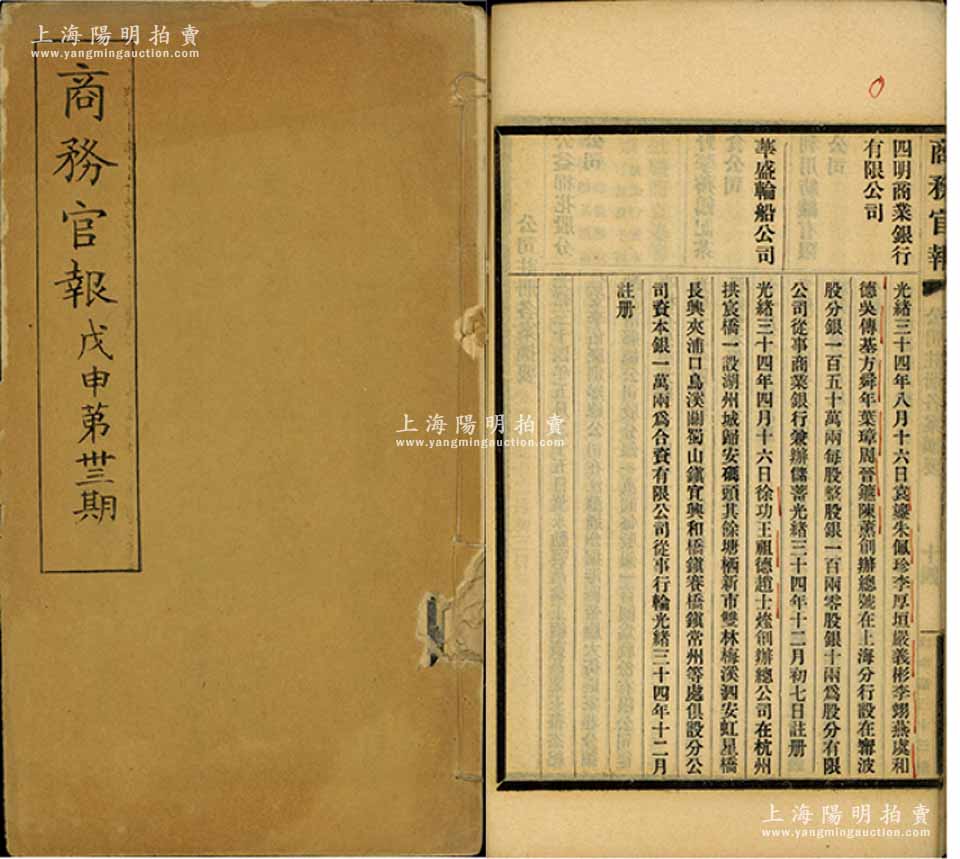 上海陽明拍賣
www.yangmingauction.com
商務官報戊申第卅三期
商務官報
四明商業銀行
有限公司
光緒三十四年八月十六日袁鎏朱佩珍李厚垣嚴義彬李翊燕虞和
德吳傳基方舜年葉璋周晉鑣陳薰創辦總號在上海分行設在甯波
股分銀一百五十萬兩每股整股銀一百兩零股銀十兩爲股分有限
公司從事商業銀行兼辦儲蓄光緒三十四年十二月初七日註册
華盛輪船公司
光緒三十四年四月十六日徐功王祖德趙士燈創辦總公司在杭州
拱宸橋一設湖州城歸安碼頭其餘塘栖新市雙林梅溪泗安虹星橋
長興夾浦口烏溪關蜀山鎮宜興和橋鎮寨橋鎮常州等處俱設分公
司資本銀一萬兩爲合資有限公司從事行輪光緒三十四年十二月
註册
上海陽明拍賣
www.yangmingauction.com
上海陽明拍賣
www.yangmingauction.com